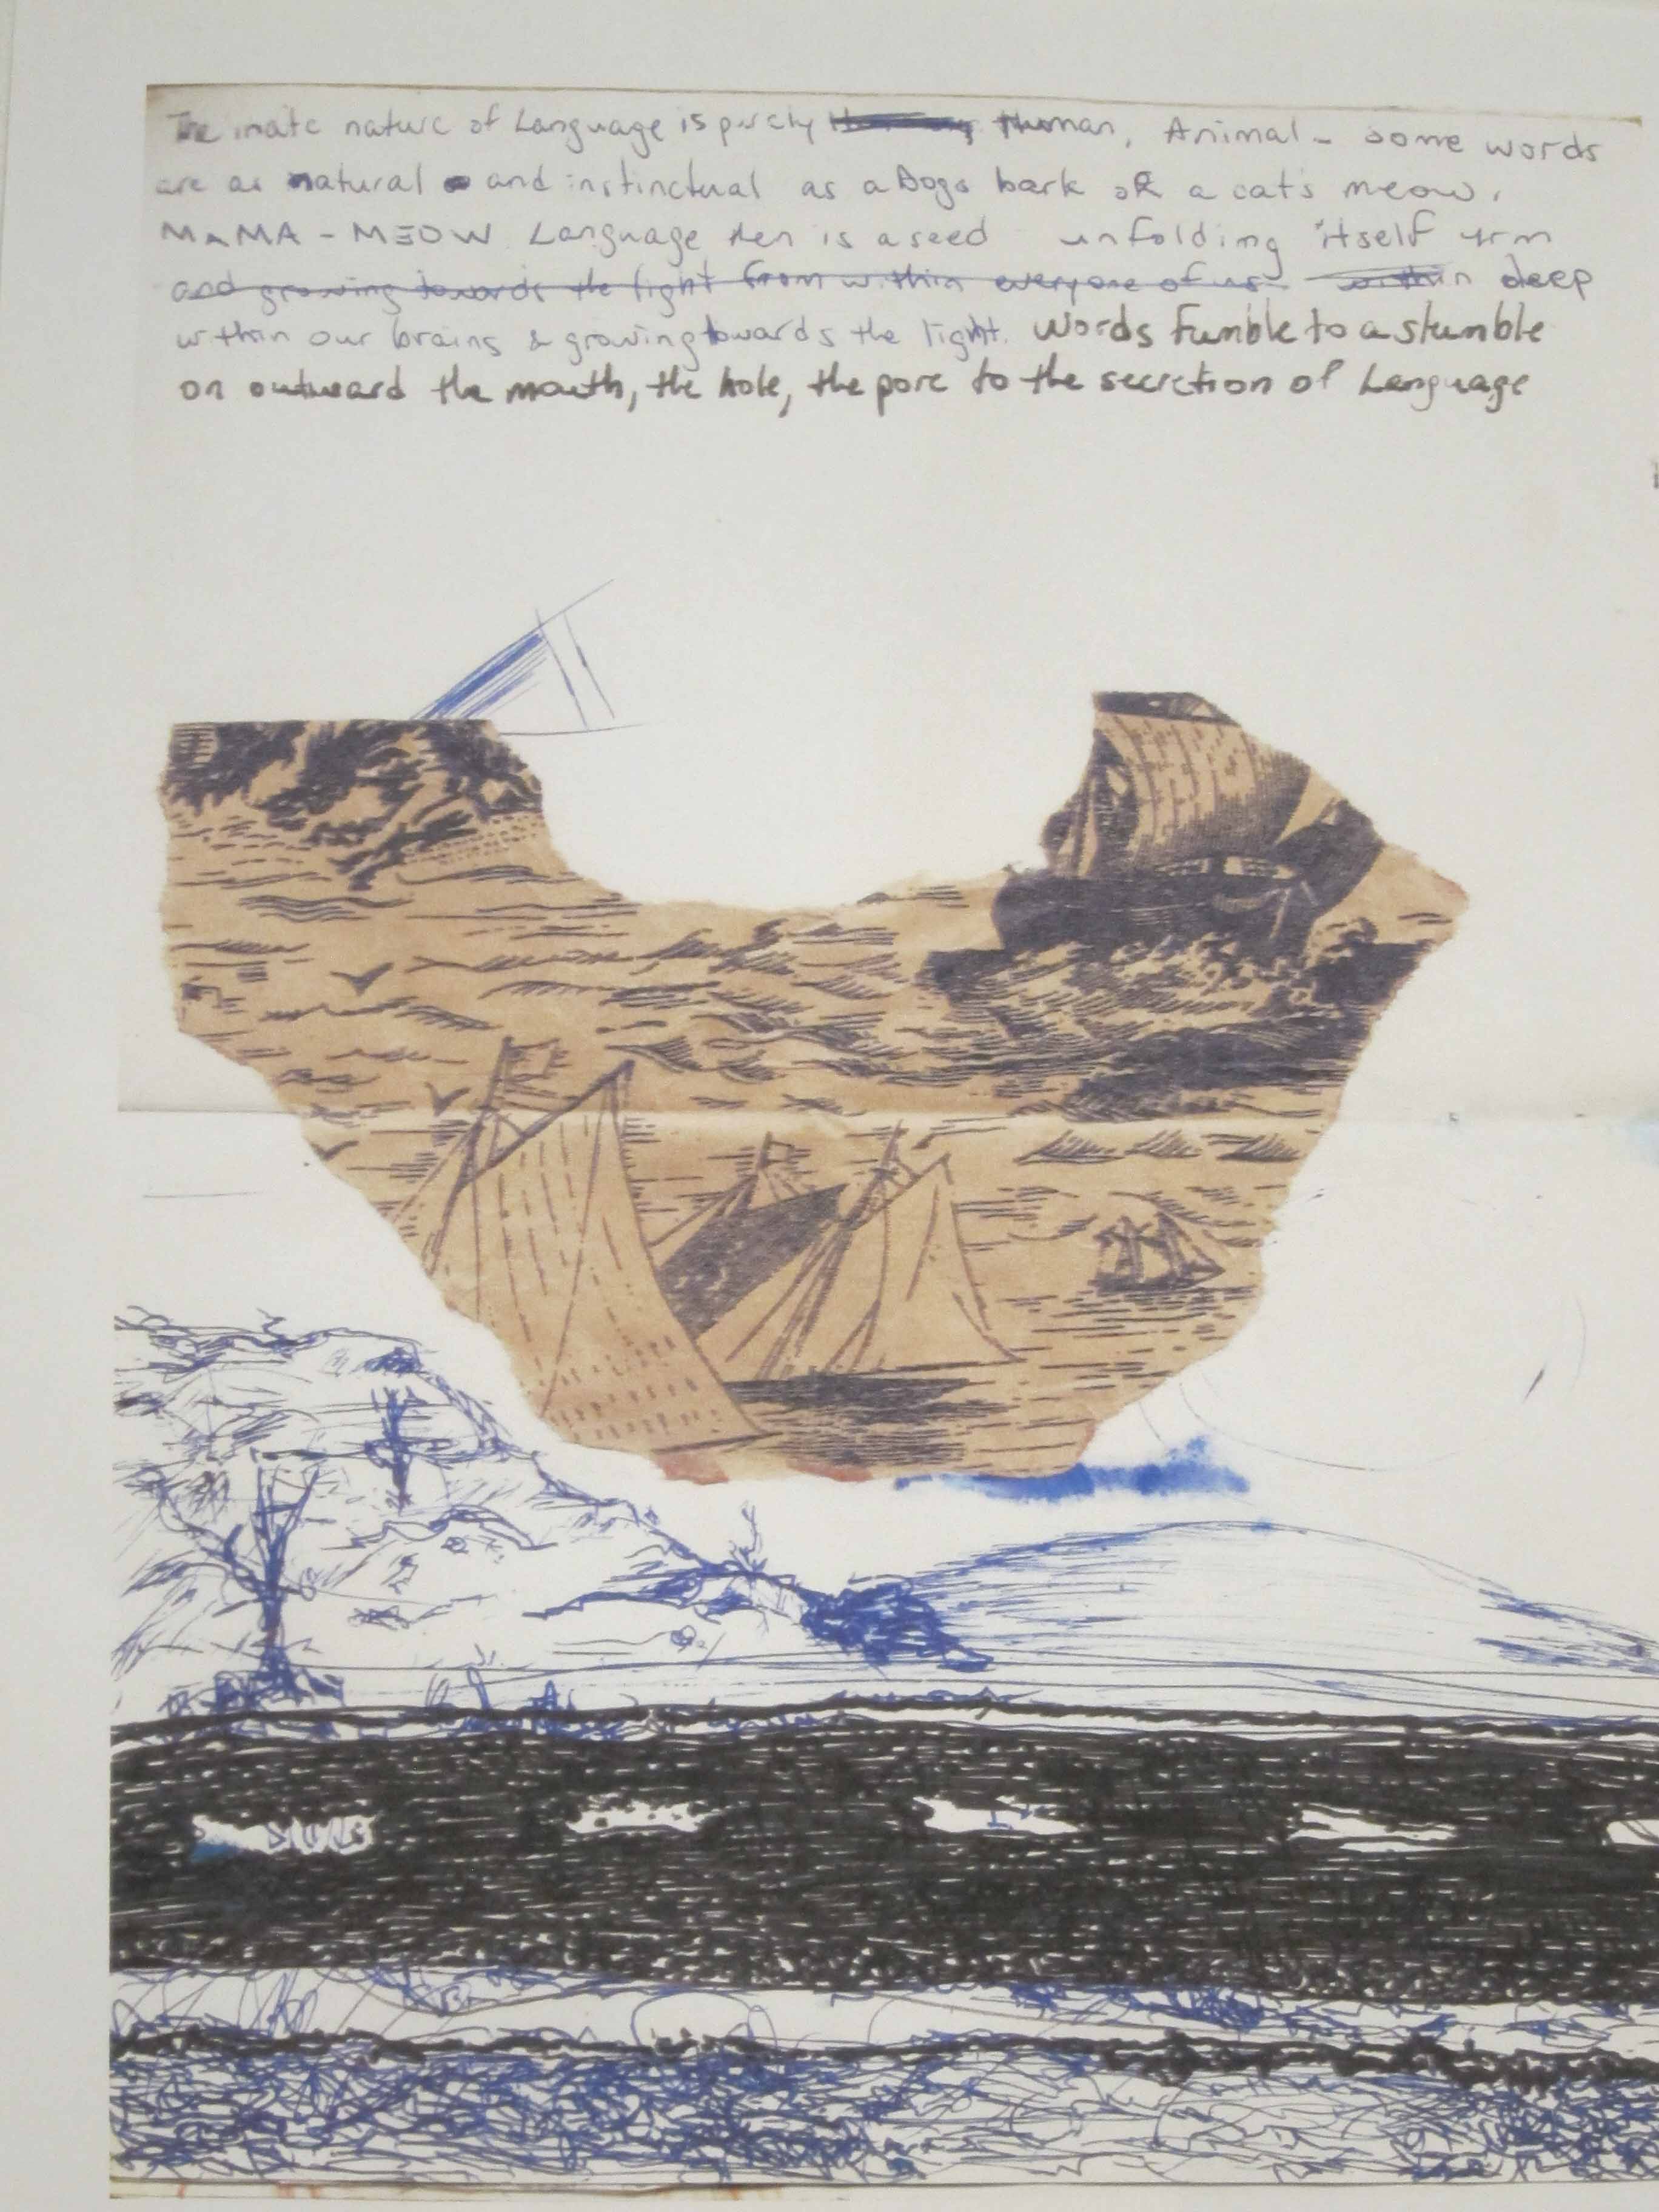 The inate nature of Language is purely Human, Animal - some words
are as natural and instinctual as a Dogs bark oR a cat's meow.
MAMA - MEOW Language then is a seed unfolding itself
and growing towards the light from within everyone of us within deep
within our brains & growing towards the light. Words Fumble to a stumble
on outward the mouth, the hole, the pore to the secretion of Language